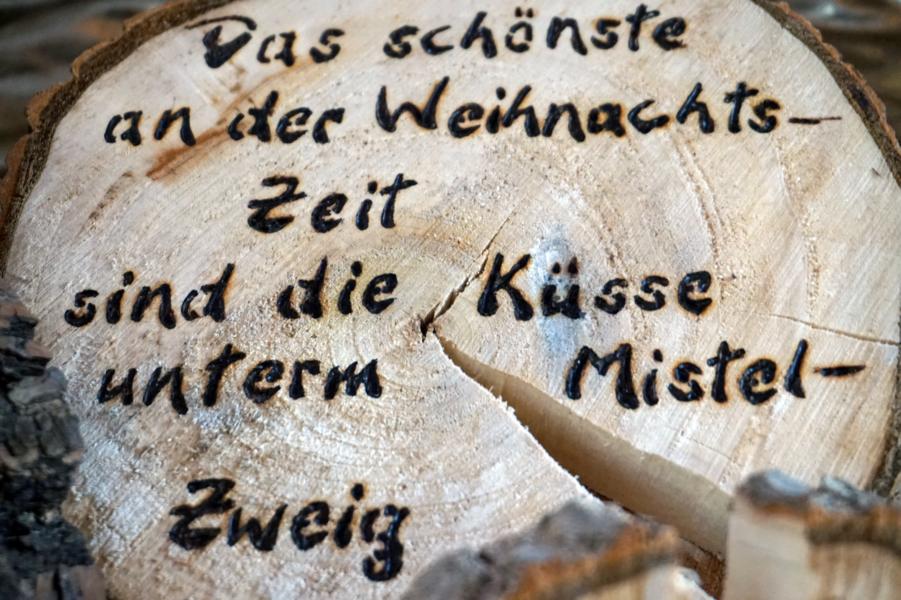 Das schönste
an der Weihnachts-
Zeit
sind die Küsse
unterm Mistel-
Zweig